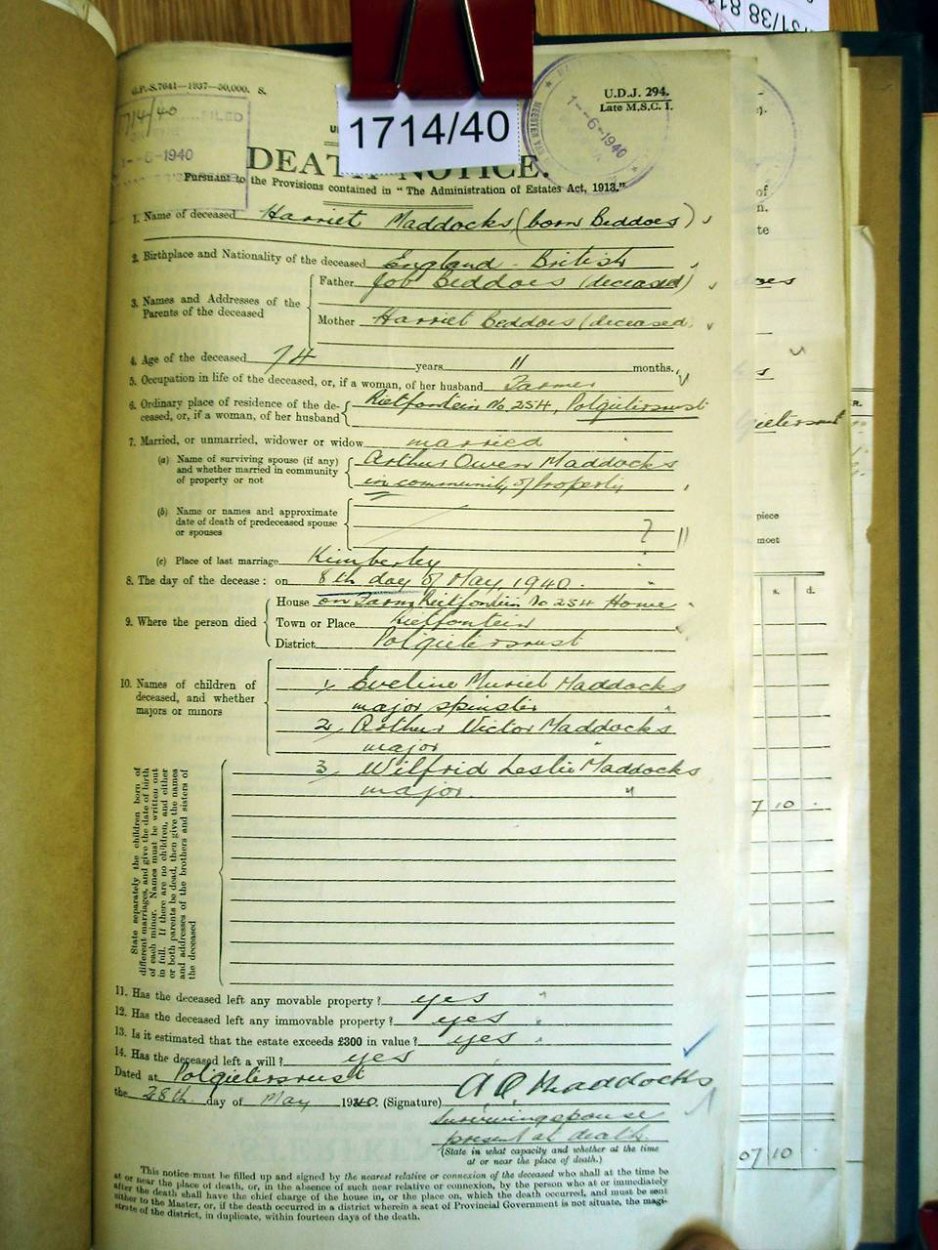 31/38 81
G.P.-S.7641—1937—50,000. S.
U.D.J. 294.
Late M.S.C. 1.
1714/40
FILED
1--6-1940
1--6-1940
1714/40
DEATH NOTICE.
Pursuant to the Provisions contained in "The Administration of Estates Act, 1913."
1. Name of deceased Harriet Maddocks (born Beddoes)
2. Birthplace and Nationality of the deceased England - British
3. Names and Addresses of the Parents of the deceased
Father Job Beddoes (deceased)
Mother Harriet Beddoes (deceased
4. Age of the deceased 74 years 11 months.
5. Occupation in life of the deceased, or, if a woman, of her husband Farmer
6. Ordinary place of residence of the de-
ceased, or, if a woman, of her husband
Rietfontein No 254, Potgietersrust
7. Married, or unmarried, widower or widow married
(a) Name of surviving spouse (if any)
and whether married in community
of property or not
Arthur Owen Maddocks
in community of Property
(b) Name or names and approximate
date of death of predeceased spouse
or spouses
(c) Place of last marriage Kimberley
8. The day of the decease: on 8th day of May 1940.
9. Where the person died
House on Farm Rietfontein No 254 Home
Town or Place Rietfontein
District Potgietersrust
10. Names of children of
deceased, and whether
majors or minors
1, Eveline Muriel Maddocks
major spinster
2, Arthur Victor Maddocks
major
3, Wilfrid Leslie Maddocks
major.
State separately the children born of
different marriages, and give the date of birth
of each minor. Names must be written out
in full. If there are no children, and either
or both parents be dead, then give the names
and addresses of the brothers and sisters of
the deceased
11. Has the deceased left any movable property? yes
12. Has the deceased left any immovable property? yes
13. Is it estimated that the estate exceeds £300 in value? yes
14. Has the deceased left a will? yes
Dated at Potgietersrust
the 28th day of May 1940. (Signature) A O Maddocks
Surviving spouse
present at death.
(State in what capacity and whether at the time
at or near the place of death.)
This notice must be filled up and signed by the nearest relative or connexion of the deceased who shall at the time be
at or near the place of death, or, in the absence of such near relative or connexion, by the person who at or immediately
after the death shall have the chief charge of the house in, or the place on, which the death occurred, and must be sent
either to the Master, or, if the death occurred in a district wherein a seat of Provincial Government is not situate, the magi-
strate of the district, in duplicate, within fourteen days of the death.
of
n.
te
piece
moet
s. d.
7 10
07 10